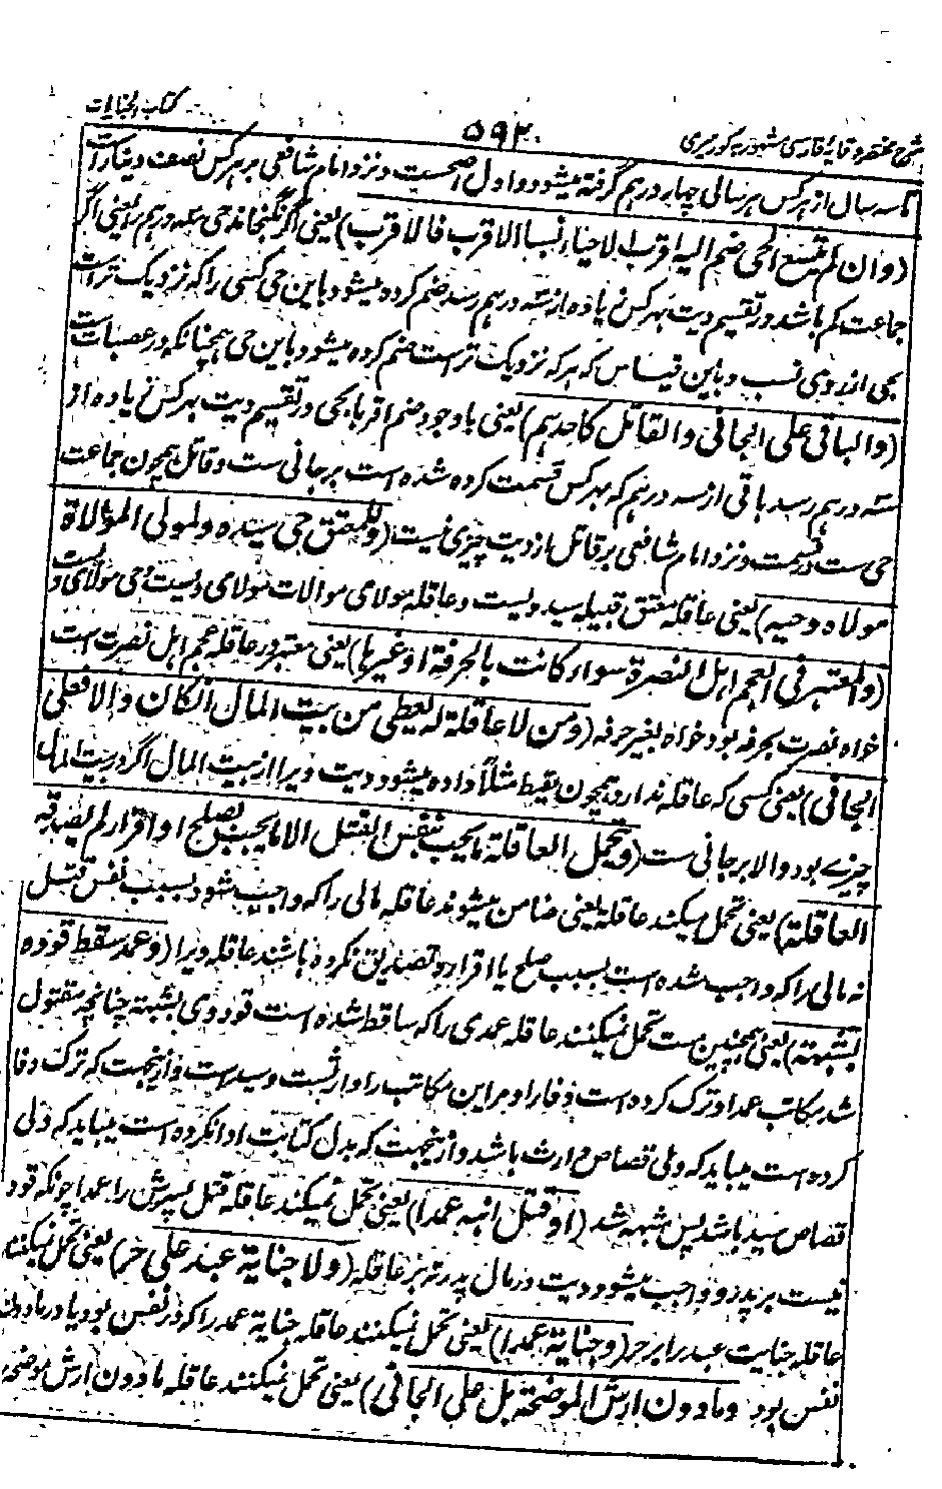 کتاب الجنایات
۵۹۲
شرح مختصر وقایهٔ فارسی مشهور به کورمیری
تا سه سال از هرکس هر سالی چهار درهم گرفته میشود و اول اصحست و نزد امام شافعی بر هرکس نصف دینارست
(وان لم تتسع الحی ضم الیه اقرب الاحیاء نسبا الاقرب فالاقرب) یعنی اگر نگنجاند حی سه درهم را یعنی اگر
جماعت کم باشد در تقسیم دیت بهرکس زیاده از سه درهم رسد ضم کرده میشود باین حی کسی را که نزدیک ترست
بحی از روی نسب و باین قیاس که هرکه نزدیک ترست ضم کرده میشود باین حی همچنانکه در عصبات ست
(والباقی علی الجانی والقاتل کاحدهم) یعنی باوجود ضم اقربا بحی در تقسیم دیت بهرکس زیاده از
سه درهم رسد باقی از سه درهم که بهرکس قسمت کرده شده است بر جانی ست و قاتل همچون جماعت
حی ست در دیت و نزد امام شافعی بر قاتل از دیت چیزی نیست (وللمعتق حی سیده ولمولی الموالاة
مولاه وحیه) یعنی عاقلهٔ معتق قبیله سید ویست و عاقلهٔ مولای موالات مولای ویست وحی مولای ویست
(والمعتبر فی العجم اهل النصرة سواء کانت بالحرفة او غیرها) یعنی معتبر در عاقله عجم اهل نصرت است
خواه نصرت بحرفه بود خواه بغیر حرفه (ومن لا عاقلة له یعطی من بیت المال ان کان والا فعلی
الجانی) یعنی کسی که عاقله ندارد همچون لقیط مثلاً داده میشود دیت ویرا از بیت المال اگر در بیت المال
چیزے بود والا بر جانی ست (وتحمل العاقلة ما یجب بنفس القتل الا ما یجب بصلح او اقرار لم یصدقه
العاقلة) یعنی تحمل میکند عاقله یعنی ضامن میشوند عاقله مالی را که واجب شود بسبب نفس قتل
نه مالی را که واجب شده است بسبب صلح یا اقرار و تصدیق نکرده باشند عاقله ویرا (وعمد سقط قوده
بشبهة) یعنی همچنین ست تحمل نمیکنند عاقله عمدی را که ساقط شده است قود وی بشبهة چنانچه مقتول
شد مکاتب عمدا و ترک کرده است وفا را و مر این مکاتب را وارثست و سیدست و ازینجهت که ترک وفا
کرده است میباید که ولی قصاص وارث باشد و ازینجهت که بدل کتابت ادا نکرده است میباید که ولی
قصاص سید باشد پس شبهه شد (او قتل ابنه عمدا) یعنی تحمل نمیکند عاقله قتل پسرش را عمدا چونکه قود
نیست بر پدر و واجب میشود دیت در مال پدر نه بر عاقله (ولا جنایة عبد علی حر) یعنی تحمل نمیکنند
عاقله جنایت عبد را بر حر (وجنایة عمدا) یعنی تحمل نمیکنند عاقله جنایة عمد را که در نفس بود یا در مادون
نفس بود وما دون ارش الموضحة بل علی الجانی) یعنی تحمل نمیکنند عاقله مادون ارش موضحه